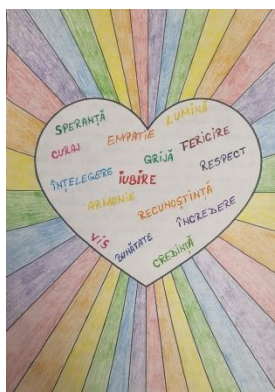 LUMINĂ
SPERANȚĂ
EMPATIE
CURAJ
FERICIRE
GRIJĂ
RESPECT
ÎNȚELEGERE
IUBIRE
ARMONIE
RECUNOȘTINȚĂ
ÎNCREDERE
VIS
BUNĂTATE
CREDINȚĂ